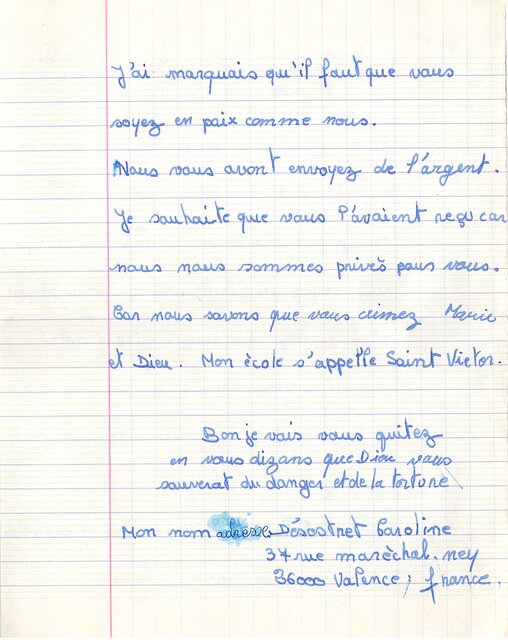 J'ai marquais qu'il faut que vous
soyez en paix comme nous.
Nous vous avont envoyez de l'argent.
Je souhaite que vous l'avaient reçu car
nous nous sommes privés pour vous.
Car nous savons que vous aimez Marie
et Dieu. Mon école s'appelle Saint Victor.
Bon je vais vous quitez
en vous dizans que Dieu vous
sauverat du danger et de la torture
Mon nom adresse Désostret Caroline
37 rue marèchal. ney
36000 Valence, france.